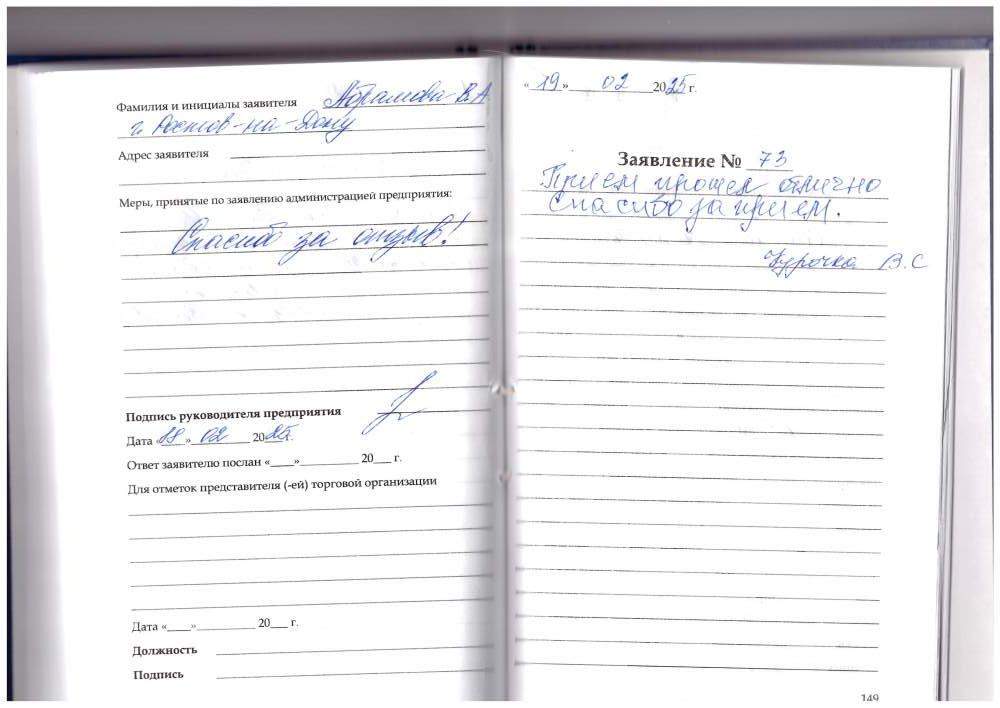 Фамилия и инициалы заявителя Абрамова В.А
г. Ростов-на-Дону
Адрес заявителя
Меры, принятые по заявлению администрацией предприятия:
Спасибо за отзыв!
Подпись руководителя предприятия
Дата «18» 02 2025г.
Ответ заявителю послан «___»__________ 20___ г.
Для отметок представителя (-ей) торговой организации
Дата «____»__________ 20___ г.
Должность
Подпись
«19» 02 2025г.
Заявление № 73
Прием прошел отлично
Спасибо за прием.
Курочка В.С
149